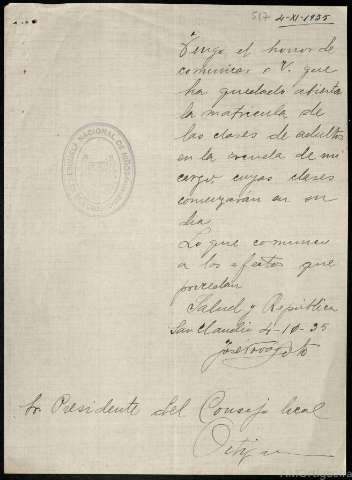 517 4-XI-1935
Tengo el honor de
comunicar a V. que
ha quedado abierta
la matrícula de
las clases de adultos
en la escuela de mi
cargo, cuyas clases
comenzarán en su
dia.
Lo que comunico
a los efectos que
procedan
Salud y República
San Claudio 4-10-35
ESCUELA NACIONAL DE NIÑOS
Sr Presidente del Consejo local